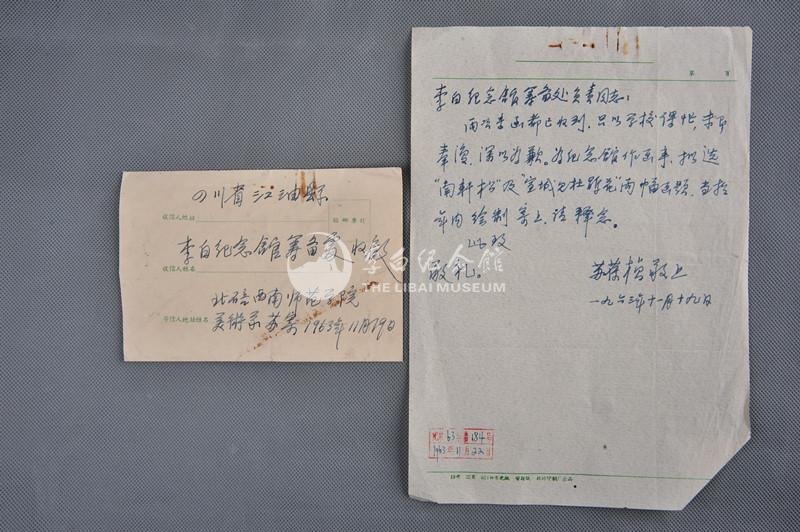 四川省江油县
收信人地址
贴邮票处
李白纪念馆筹备处 收启
收信人姓名
北碚西南师范学院
寄信人地址姓名 美术系苏葆 1963年11月19日
第 页
李白纪念馆筹备处负责同志:
两次来函都已收到,只以学校课忙,未即
奉复,深以为歉。为纪念馆作画事,拟选
"南轩松"及"宣城见杜鹃花"两幅画题,当于
年内绘制寄上,请释念。
此致
敬礼。
苏葆桢敬上
一九六三年十一月十九日
63年 184号
1963年11月22日
李白纪念馆
THE LIBAI MUSEUM